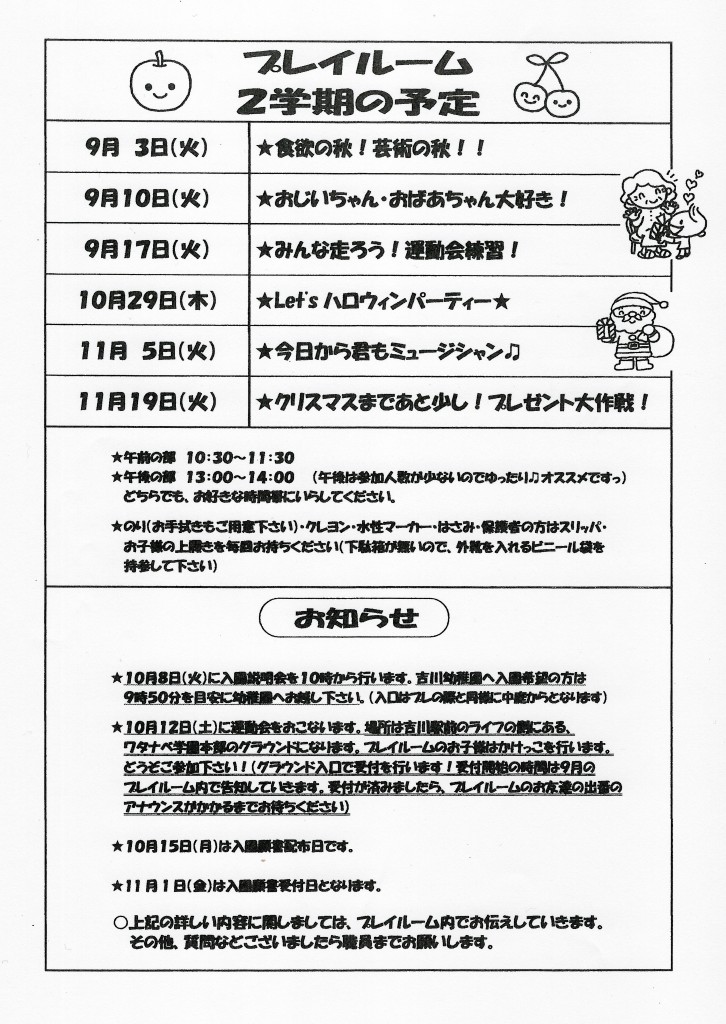 プレイルーム
2学期の予定
9月 3日(火) ★食欲の秋！芸術の秋！！
9月10日(火) ★おじいちゃん・おばあちゃん大好き！
9月17日(火) ★みんな走ろう！運動会練習！
10月29日(木) ★Let's ハロウィンパーティー★
11月 5日(火) ★今日から君もミュージシャン♫
11月19日(火) ★クリスマスまであと少し！プレゼント大作戦！
★午前の部 10:30～11:30
★午後の部 13:00～14:00 (午後は参加人数が少ないのでゆったり♫オススメですっ)
どちらでも、お好きな時間帯にいらしてください。
★のり(お手拭きもご用意下さい)・クレヨン・水性マーカー・はさみ・保護者の方はスリッパ・
お子様の上履きを毎回お持ちください(下駄箱が無いので、外靴を入れるビニール袋を
持参して下さい)
お知らせ
★10月8日(火)に入園説明会を10時から行います。吉川幼稚園へ入園希望の方は
9時50分を目安に幼稚園へお越し下さい。(入口はプレの際と同様に中庭からとなります)
★10月12日(土)に運動会をおこないます。場所は吉川駅前のライフの隣にある、
ワタナベ学園本部のグラウンドになります。プレイルームのお子様はかけっこを行います。
どうぞご参加下さい！(グラウンド入口で受付を行います！受付開始の時間は9月の
プレイルーム内で告知していきます。受付が済みましたら、プレイルームのお友達の出番の
アナウンスがかかるまでお待ちください)
★10月15日(月)は入園願書配布日です。
★11月1日(金)は入園願書受付日となります。
○上記の詳しい内容に関しましては、プレイルーム内でお伝えしていきます。
その他、質問などございましたら職員までお願いします。